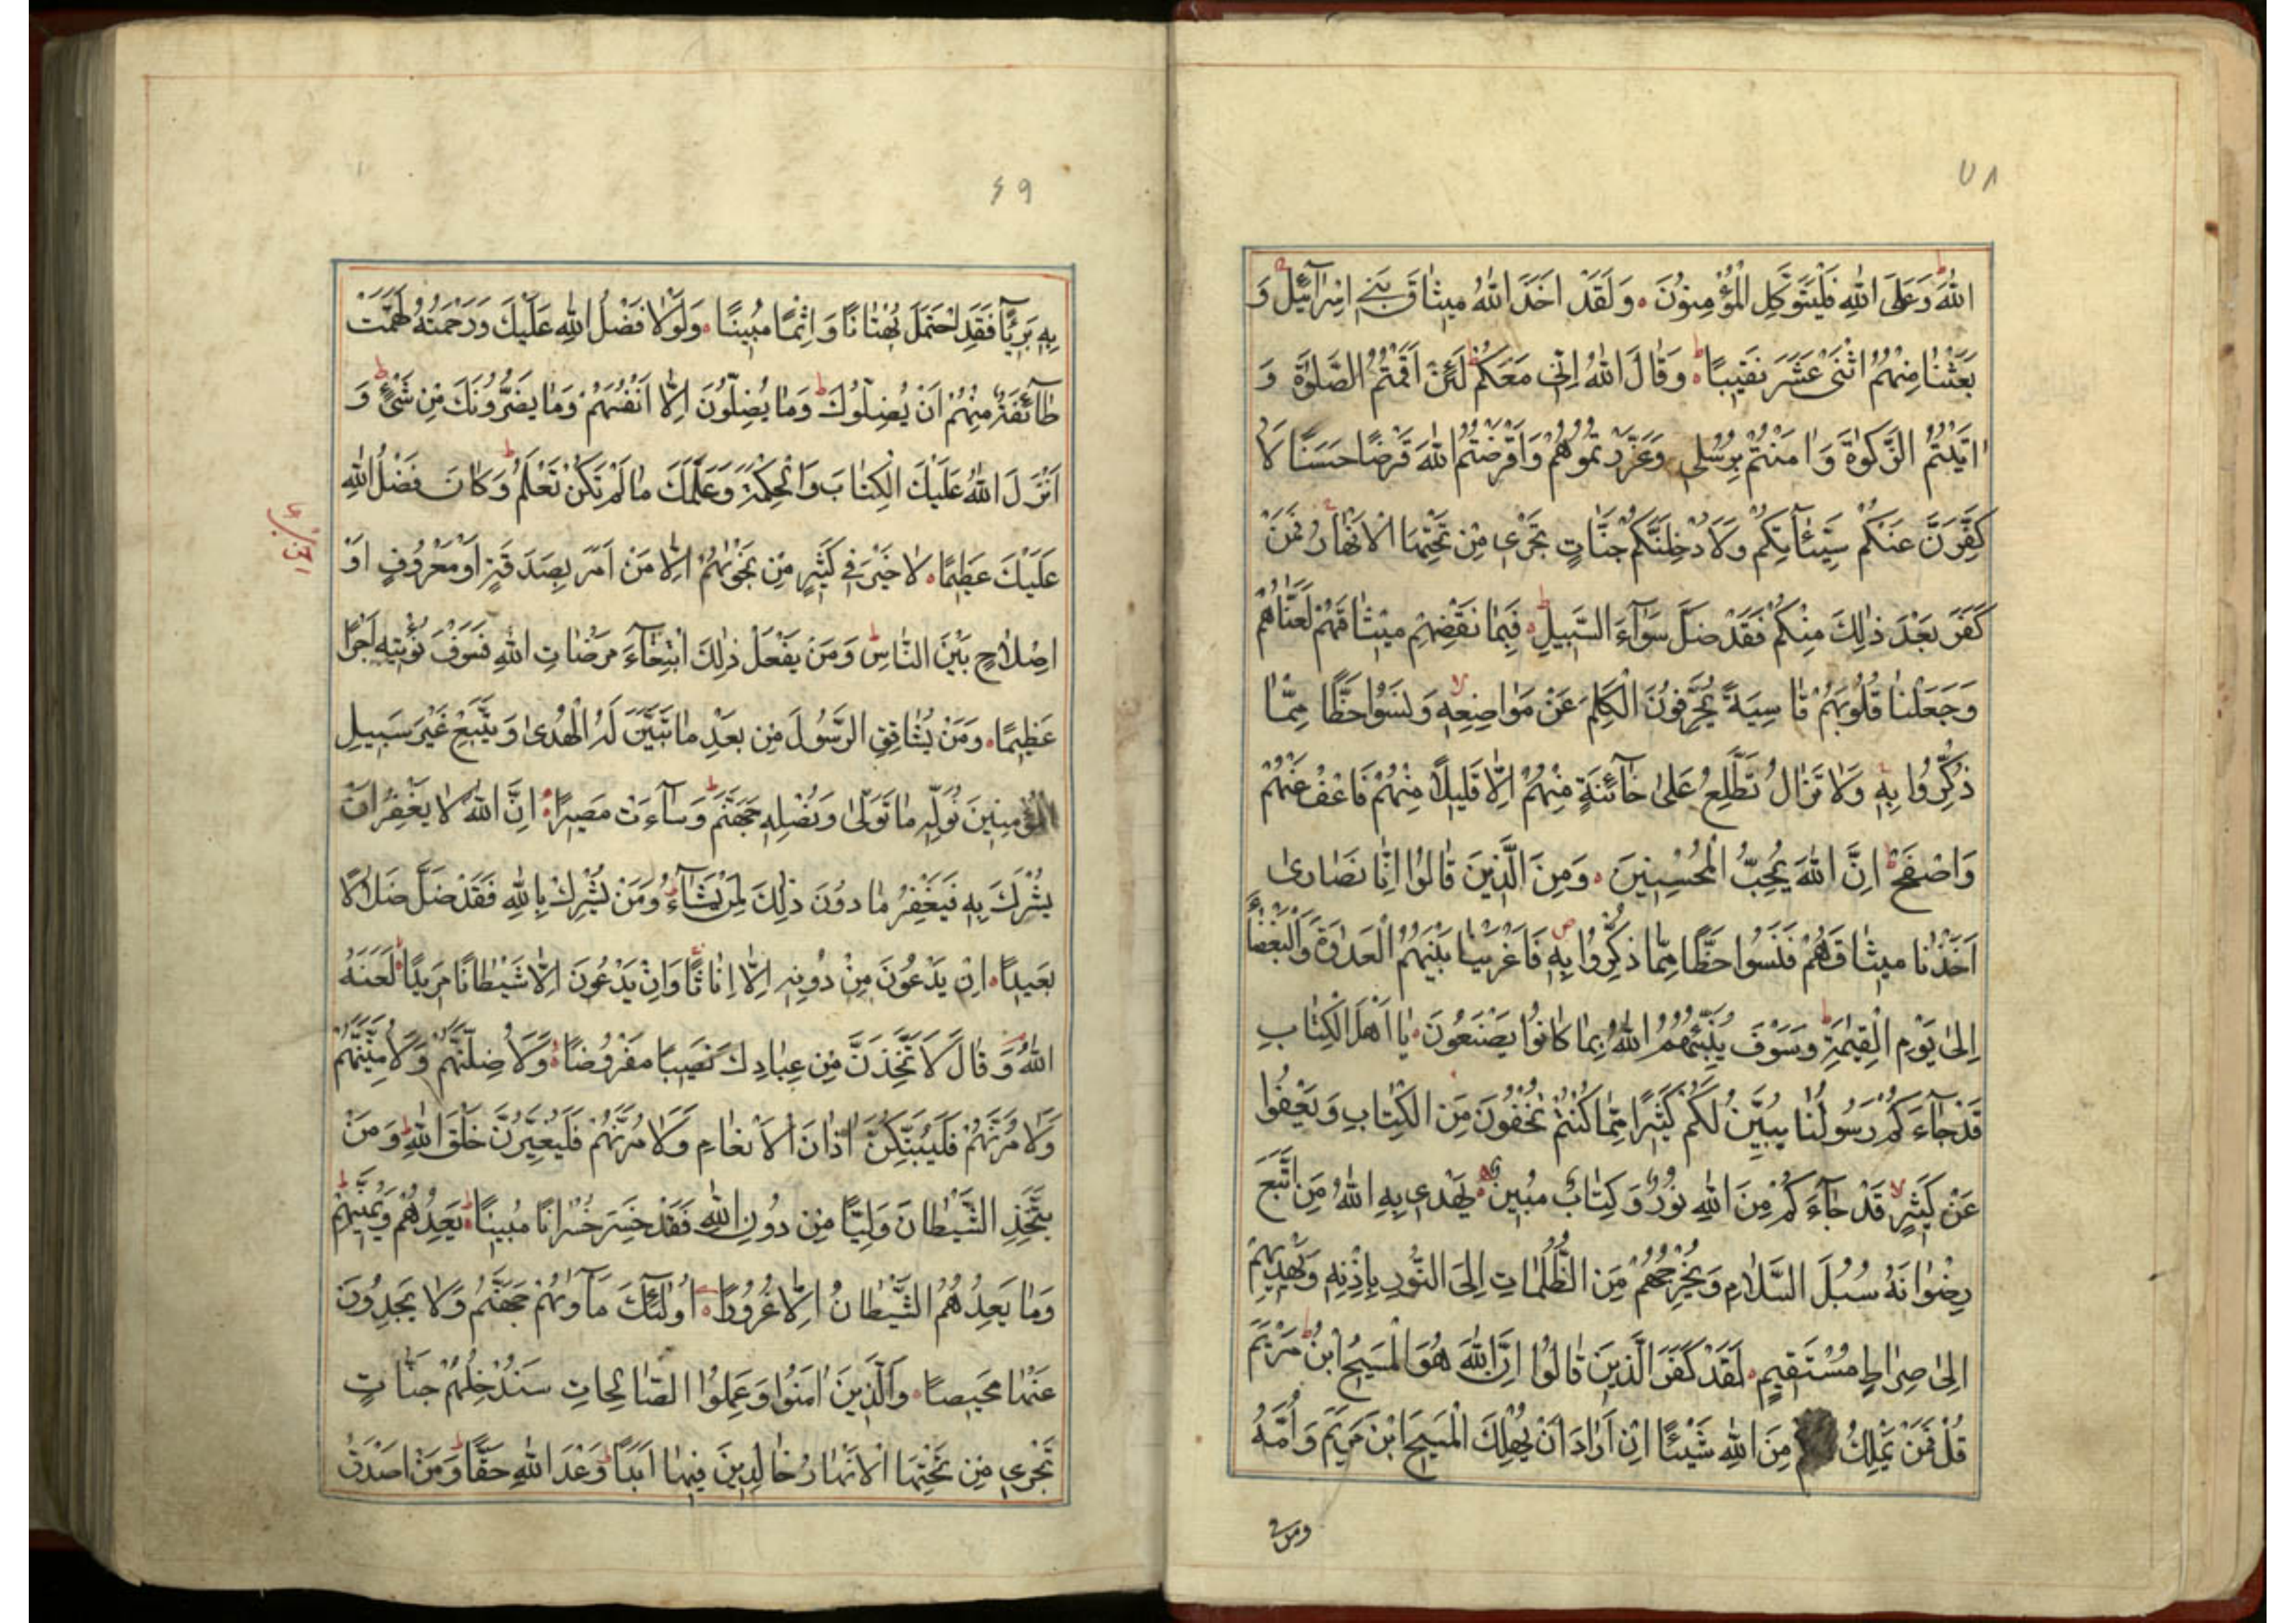 ٧٨
اللهَ وَعَلَى اللهِ فَلْيَتَوَكَّلِ الْمُؤْمِنُونَ ۰ وَلَقَدْ اَخَذَ اللهُ مِيثَاقَ بَنِي اِسْرَآئِيلَ وَ
بَعَثْنَا مِنْهُمُ اثْنَىْ عَشَرَ نَقِيبًا ۰ وَقَالَ اللهُ اِنِّي مَعَكُمْ لَئِنْ اَقَمْتُمُ الصَّلٰوةَ وَ
اٰتَيْتُمُ الزَّكٰوةَ وَاٰمَنْتُمْ بِرُسُلِي وَعَزَّرْتُمُوهُمْ وَاَقْرَضْتُمُ اللهَ قَرْضًا حَسَنًا لَا
كَفِّرَنَّ عَنْكُمْ سَيِّئَاٰتِكُمْ وَلَاُدْخِلَنَّكُمْ جَنَّاتٍ تَجْرِي مِنْ تَحْتِهَا الْاَنْهَارُ فَمَنْ
كَفَرَ بَعْدَ ذٰلِكَ مِنْكُمْ فَقَدْ ضَلَّ سَوَآءَ السَّبِيلِ ۰ فَبِمَا نَقْضِهِمْ مِيثَاقَهُمْ لَعَنَّاهُمْ
وَجَعَلْنَا قُلُوبَهُمْ قَاسِيَةً يُحَرِّفُونَ الْكَلِمَ عَنْ مَوَاضِعِهِ وَنَسُوا حَظًّا مِمَّا
ذُكِّرُوا بِهِ وَلَا تَزَالُ تَطَّلِعُ عَلٰى خَآئِنَةٍ مِنْهُمْ اِلَّا قَلِيلًا مِنْهُمْ فَاعْفُ عَنْهُمْ
وَاصْفَحْ اِنَّ اللهَ يُحِبُّ الْمُحْسِنِينَ ۰ وَمِنَ الَّذِينَ قَالُوا اِنَّا نَصَارٰى
اَخَذْنَا مِيثَاقَهُمْ فَنَسُوا حَظًّا مِمَّا ذُكِّرُوا بِهِ فَاَغْرَيْنَا بَيْنَهُمُ الْعَدَاوَةَ وَالْبَغْضَآءَ
اِلٰى يَوْمِ الْقِيٰمَةِ وَسَوْفَ يُنَبِّئُهُمُ اللهُ بِمَا كَانُوا يَصْنَعُونَ ۰ يَا اَهْلَ الْكِتَابِ
قَدْ جَآءَكُمْ رَسُولُنَا يُبَيِّنُ لَكُمْ كَثِيرًا مِمَّا كُنْتُمْ تُخْفُونَ مِنَ الْكِتَابِ وَيَعْفُوا
عَنْ كَثِيرٍ قَدْ جَآءَكُمْ مِنَ اللهِ نُورٌ وَكِتَابٌ مُبِينٌ ۰ يَهْدِي بِهِ اللهُ مَنِ اتَّبَعَ
رِضْوَانَهُ سُبُلَ السَّلَامِ وَيُخْرِجُهُمْ مِنَ الظُّلُمَاتِ اِلَى النُّورِ بِاِذْنِهِ وَيَهْدِيهِمْ
اِلٰى صِرَاطٍ مُسْتَقِيمٍ ۰ لَقَدْ كَفَرَ الَّذِينَ قَالُوا اِنَّ اللهَ هُوَ الْمَسِيحُ ابْنُ مَرْيَمَ
قُلْ فَمَنْ يَمْلِكُ مِنَ اللهِ شَيْئًا اِنْ اَرَادَ اَنْ يُهْلِكَ الْمَسِيحَ ابْنَ مَرْيَمَ وَاُمَّهُ
ومن
٤٩
بِهِ بَرِيئًا فَقَدِ احْتَمَلَ بُهْتَانًا وَاِثْمًا مُبِينًا ۰ وَلَوْلَا فَضْلُ اللهِ عَلَيْكَ وَرَحْمَتُهُ لَهَمَّتْ
طَآئِفَةٌ مِنْهُمْ اَنْ يُضِلُّوكَ وَمَا يُضِلُّونَ اِلَّا اَنْفُسَهُمْ وَمَا يَضُرُّونَكَ مِنْ شَىْءٍ وَ
اَنْزَلَ اللهُ عَلَيْكَ الْكِتَابَ وَالْحِكْمَةَ وَعَلَّمَكَ مَا لَمْ تَكُنْ تَعْلَمُ وَكَانَ فَضْلُ اللهِ
عَلَيْكَ عَظِيمًا ۰ لَا خَيْرَ فِي كَثِيرٍ مِنْ نَجْوٰىهُمْ اِلَّا مَنْ اَمَرَ بِصَدَقَةٍ اَوْ مَعْرُوفٍ اَوْ
اِصْلَاحٍ بَيْنَ النَّاسِ وَمَنْ يَفْعَلْ ذٰلِكَ ابْتِغَآءَ مَرْضَاتِ اللهِ فَسَوْفَ نُؤْتِيهِ اَجْرًا
عَظِيمًا ۰ وَمَنْ يُشَاقِقِ الرَّسُولَ مِنْ بَعْدِ مَا تَبَيَّنَ لَهُ الْهُدٰى وَيَتَّبِعْ غَيْرَ سَبِيلِ
الْمُؤْمِنِينَ نُوَلِّهِ مَا تَوَلّٰى وَنُصْلِهِ جَهَنَّمَ وَسَآءَتْ مَصِيرًا ۰ اِنَّ اللهَ لَا يَغْفِرُ اَنْ
يُشْرَكَ بِهِ فَيَغْفِرُ مَا دُونَ ذٰلِكَ لِمَنْ يَشَآءُ وَمَنْ يُشْرِكْ بِاللهِ فَقَدْ ضَلَّ ضَلَالًا
بَعِيدًا ۰ اِنْ يَدْعُونَ مِنْ دُونِهِ اِلَّا اِنَاثًا وَاِنْ يَدْعُونَ اِلَّا شَيْطَانًا مَرِيدًا ۰ لَعَنَهُ
اللهُ وَقَالَ لَاَتَّخِذَنَّ مِنْ عِبَادِكَ نَصِيبًا مَفْرُوضًا ۰ وَلَاُضِلَّنَّهُمْ وَلَاُمَنِّيَنَّهُمْ
وَلَاٰمُرَنَّهُمْ فَلَيُبَتِّكُنَّ اٰذَانَ الْاَنْعَامِ وَلَاٰمُرَنَّهُمْ فَلَيُغَيِّرُنَّ خَلْقَ اللهِ وَمَنْ
يَتَّخِذِ الشَّيْطَانَ وَلِيًّا مِنْ دُونِ اللهِ فَقَدْ خَسِرَ خُسْرَانًا مُبِينًا ۰ يَعِدُهُمْ وَيُمَنِّيهِمْ
وَمَا يَعِدُهُمُ الشَّيْطَانُ اِلَّا غُرُورًا ۰ اُولٰئِكَ مَأْوٰىهُمْ جَهَنَّمُ وَلَا يَجِدُونَ
عَنْهَا مَحِيصًا ۰ وَالَّذِينَ اٰمَنُوا وَعَمِلُوا الصَّالِحَاتِ سَنُدْخِلُهُمْ جَنَّاتٍ
تَجْرِي مِنْ تَحْتِهَا الْاَنْهَارُ خَالِدِينَ فِيهَا اَبَدًا وَعْدَ اللهِ حَقًّا وَمَنْ اَصْدَقُ